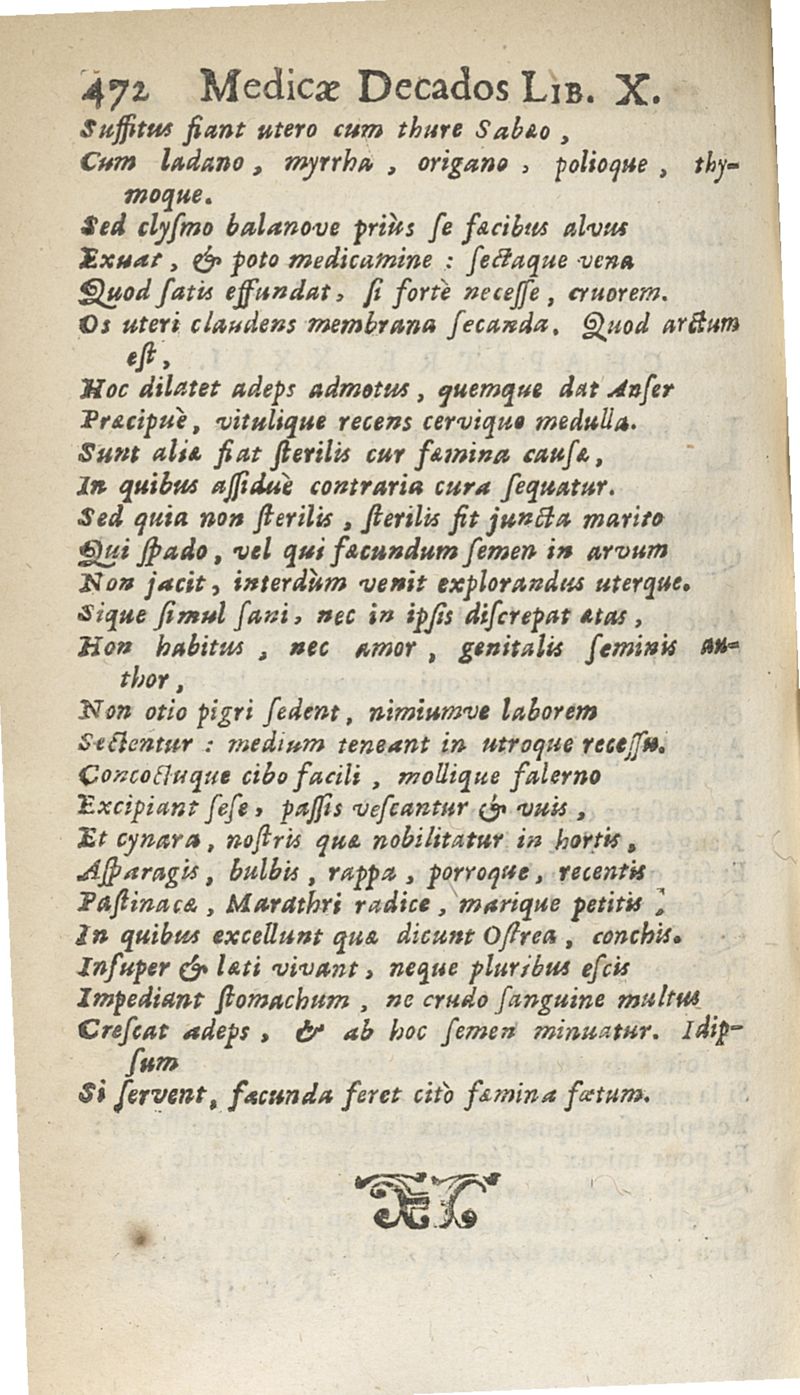 472 Medicæ Decados LIB. X.
Suffitus fiant utero cum thure Sabæo ,
Cum ladano , myrrha , origano , polioque , thy-
moque.
Sed clyſmo balanove priùs ſe fæcibus alvus
Exuat , & poto medicamine : ſectaque vena
Quod ſatis effundat, ſi fortè neceſſe , cruorem.
Os uteri claudens membrana ſecanda. Quod arctum
eſt ,
Hoc dilatet adeps admotus , quemque dat Anſer
Præcipuè , vitulique recens cervique medulla.
Sunt aliæ fiat ſterilis cur fæmina cauſæ ,
In quibus aſſiduè contraria cura ſequatur.
Sed quia non ſterilis , ſterilis fit juncta marito
Qui ſpado , vel qui fæcundum ſemen in arvum
Non jacit, interdùm venit explorandus uterque.
Sique ſimul ſani, nec in ipſis diſcrepat ætas ,
Hon habitus , nec amor , genitalis ſeminis au-
thor ,
Non otio pigri ſedent , nimiumve laborem
Sectentur : medium teneant in utroque receſſu.
Concoctuque cibo facili , mollique falerno
Excipiant ſeſe, paſſis veſcantur & vuis ,
Et cynara , noſtris quæ nobilitatur in hortis ,
Aſparagis , bulbis , rappa , porroque , recentis
Paſtinacæ , Marathri radice , marique petitis ;
In quibus excellunt quæ dicunt Oſtrea , conchis.
Inſuper & læti vivant, neque pluribus eſcis
Impediant ſtomachum , ne crudo ſanguine multus
Creſcat adeps , & ab hoc ſemen minuatur. Idip-
ſum
Si ſervent, fæcunda feret citò fæmina fœtum.